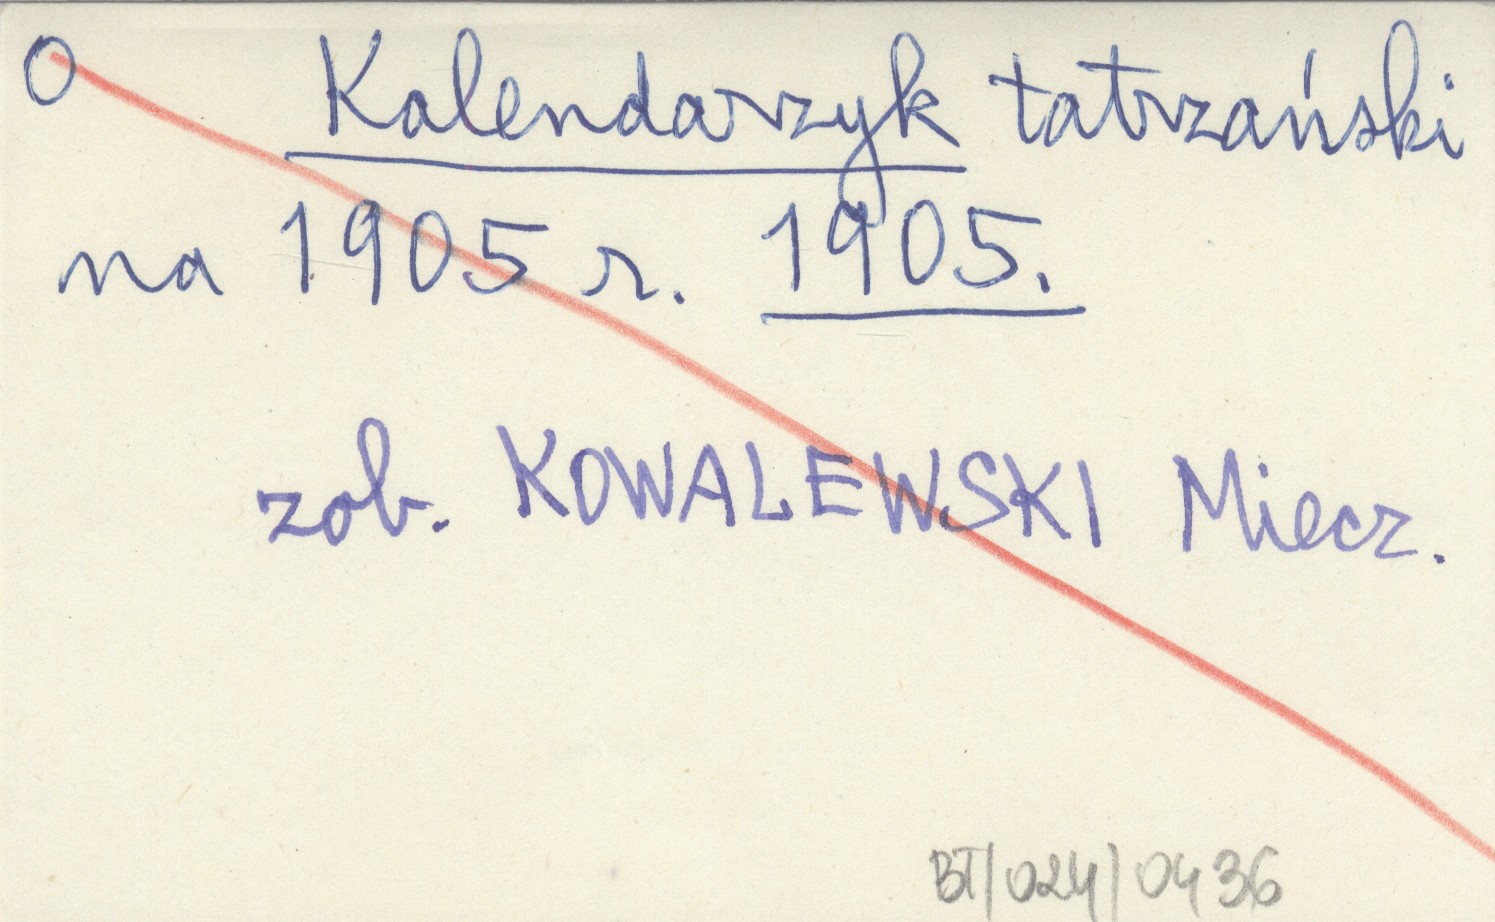 O Kalendarzyk tatrzański
na 1905 r. 1905.
zob. KOWALEWSKI Miecz.
BT/024/0436